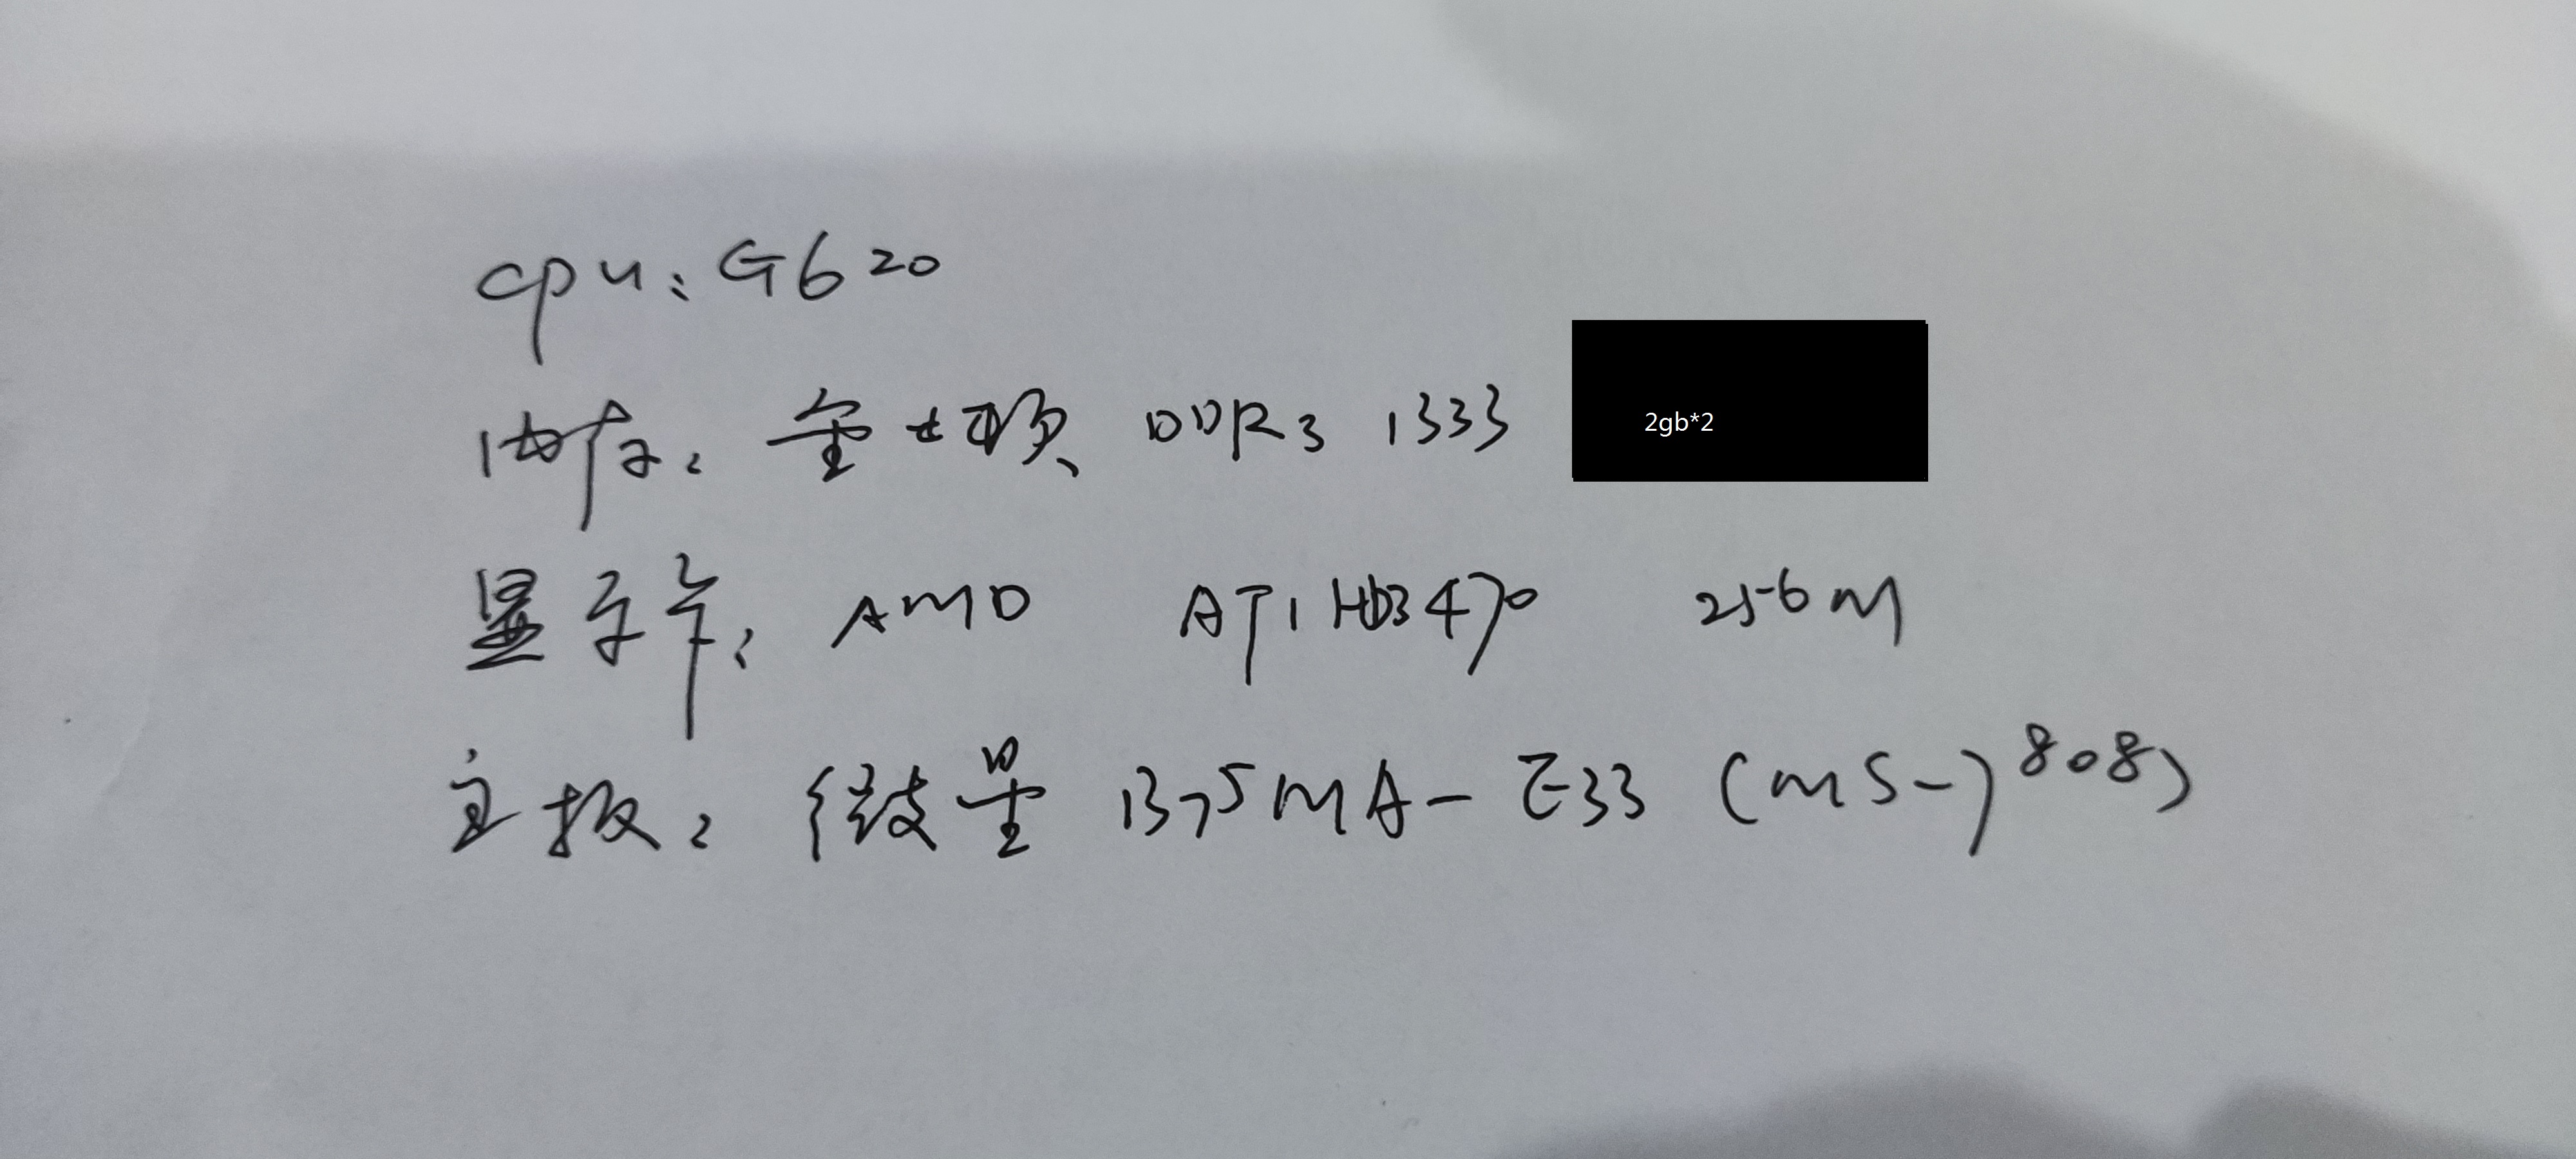 cpu：G620
内存：金士顿 DDR3 1333 2gb*2
显示卡：AMD ATI HD3470 256M
主板：微星 B75MA-E33 (MS-7808)